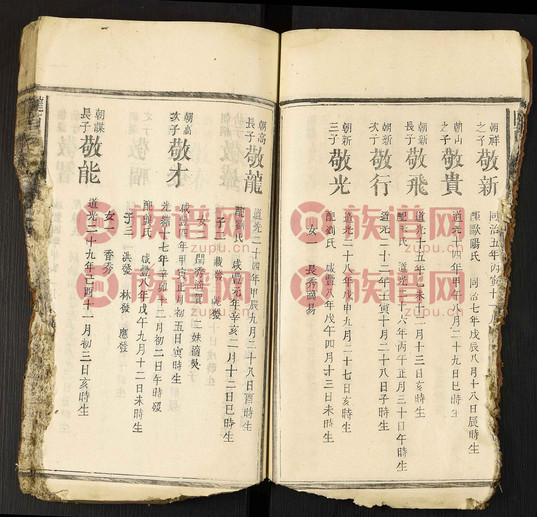 朝祥之子 敬新
同治五年丙寅十
配歐陽氏 同治七年戊辰八月十八日辰時生
朝山之子 敬貴
道光十四年甲午八月二十九日巳時
朝新長子 敬飛
道光十五年乙未十二月十三日亥時生
配 氏 道光二十六年丙午正月三十日午時生
朝新次子 敬行
道光二十二年壬寅十月二十八日子時生
朝新三子 敬光
道光二十八年戊申九月二十七日亥時生
配劉氏 咸豐八年戊午四月十三日未時生
女一 長秀
朝高長子 敬龍
道光二十四年甲辰九月二十八日酉時生
咸豐元年辛亥二月十二日巳時生
子二
女一 閏秀適賀
朝高次子 敬才
咸豐四年甲寅正月初五日寅時生
光緒十七年辛卯十二月初二日午時歿
配劉氏 咸豐八年戊午九月十二日未時生
子三 洪發 林發 應發
女二 香秀
朝謀長子 敬能
道光二十九年己酉十一月初三日亥時生
族谱网
zupu.cn
族谱网
zupu.cn
族谱网
zupu.cn
族谱网
zupu.cn